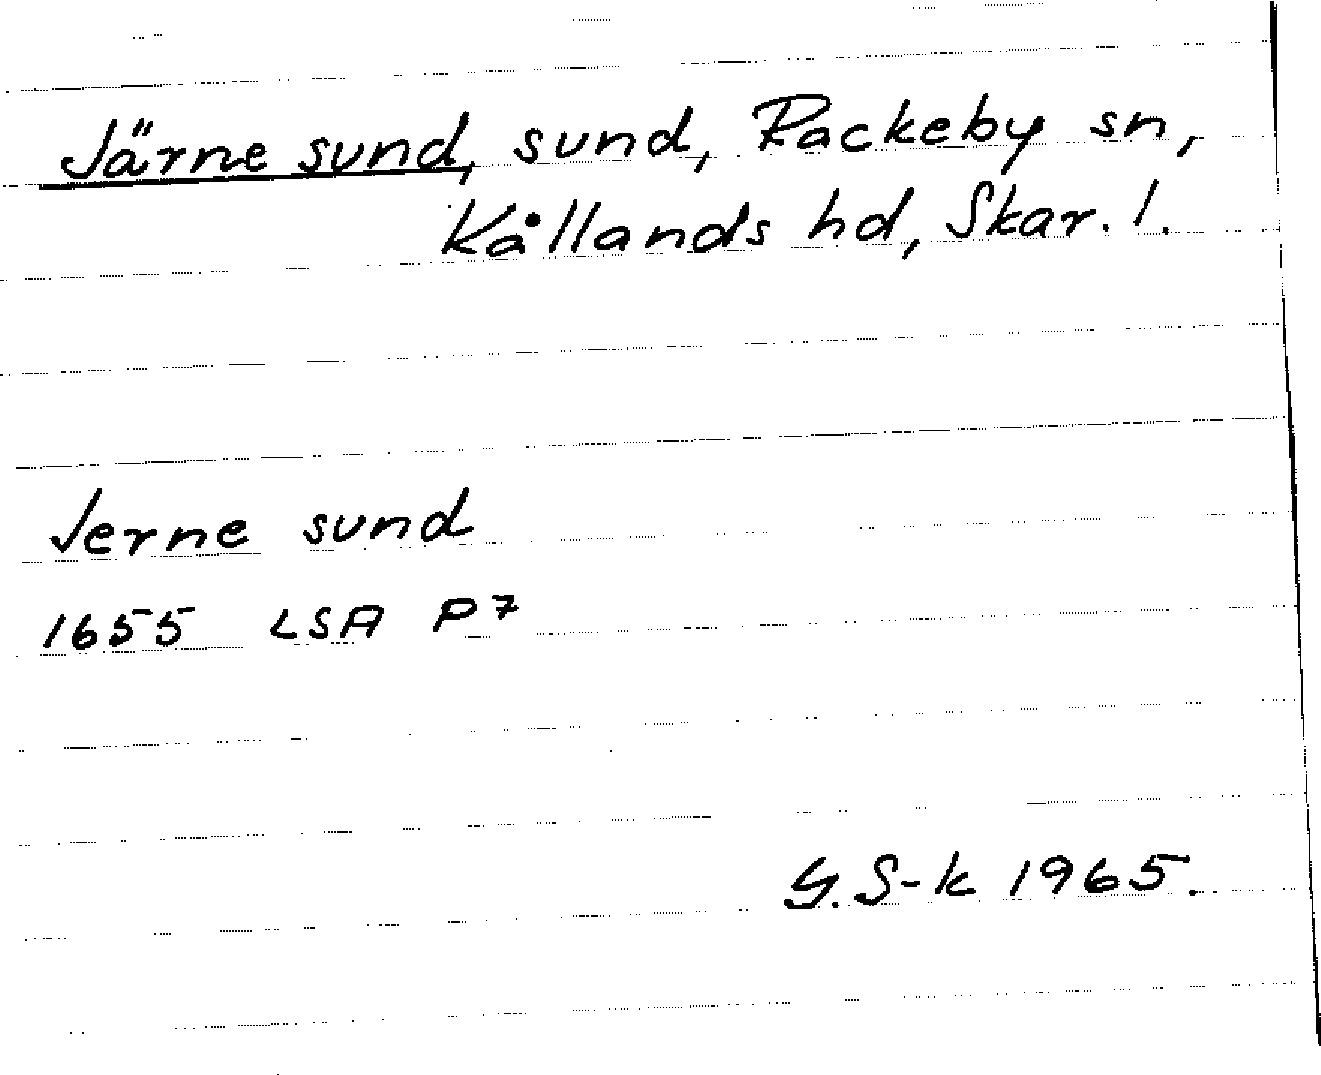 Järne sund, sund, Rackeby sn,
Kållands hd, Skar. l.
Jerne sund
1655 LSA P7
G. S-k 1965.